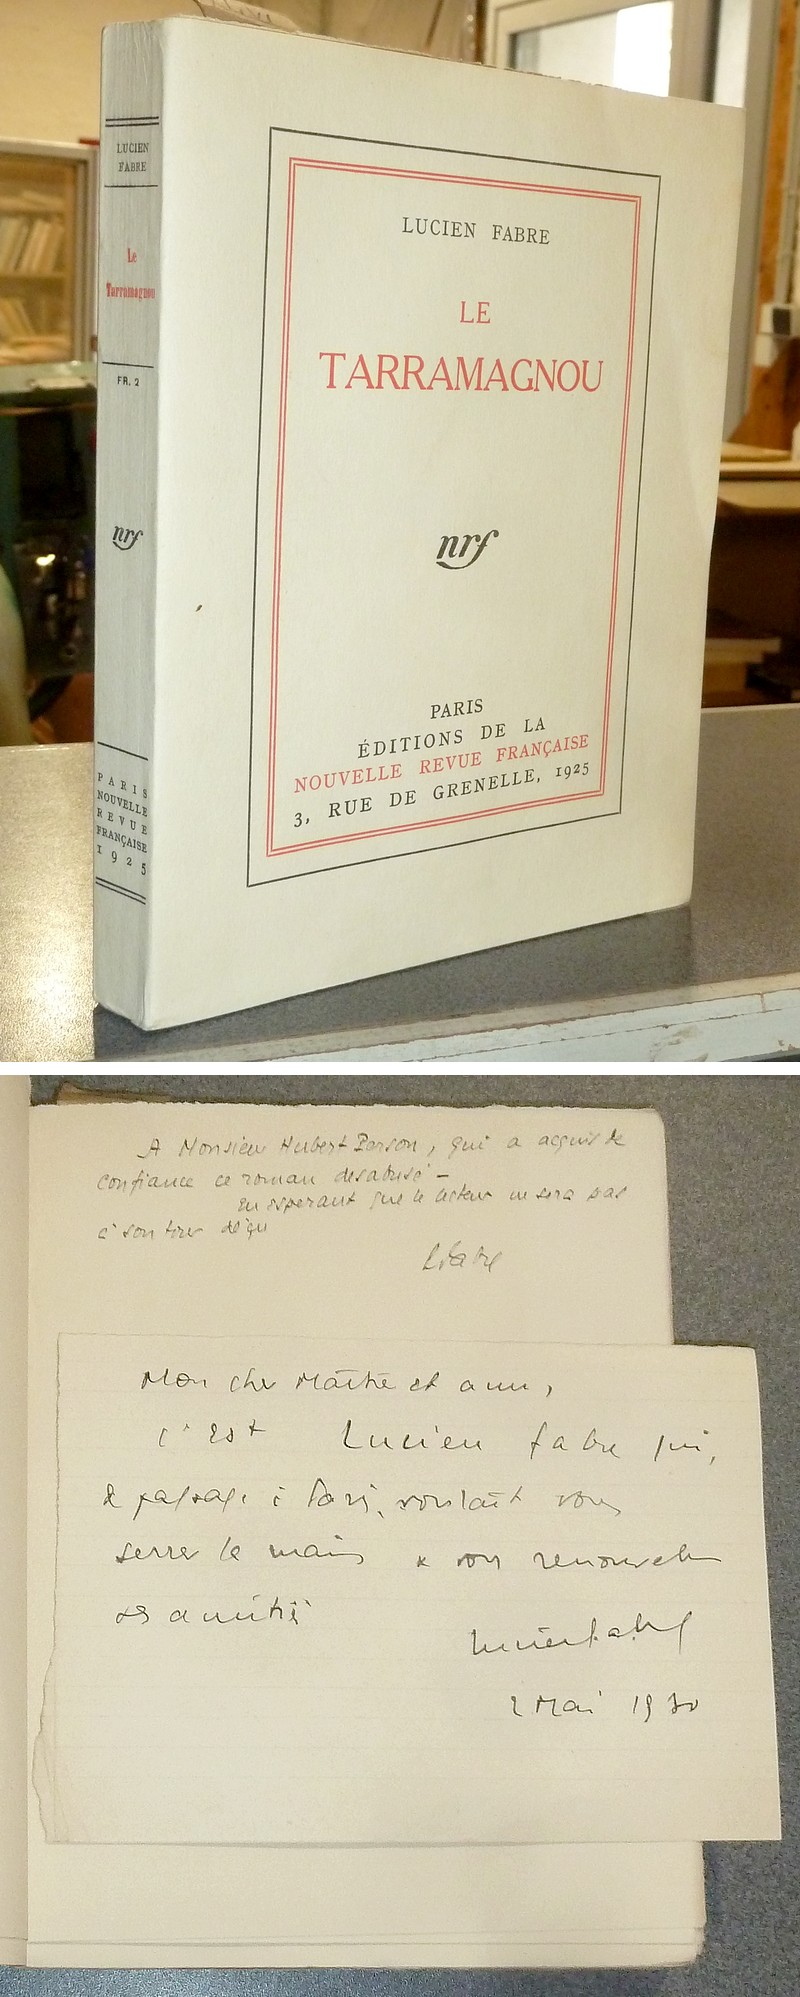 LUCIEN
FABRE
Le
Tarramagnou
FR. 2
nrf
PARIS
NOUVELLE
REVUE
FRANÇAISE
1925
LUCIEN FABRE
LE
TARRAMAGNOU
nrf
PARIS
ÉDITIONS DE LA
NOUVELLE REVUE FRANÇAISE
3, RUE DE GRENELLE, 1925
A Monsieur Hubert Person, qui a acquis de
confiance ce roman desabusé –
En esperant que le lecteur ne sera pas
à son tour déçu
LFabre
Mon cher Maître et ami,
c'est Lucien Fabre qui,
de passage à Paris, voulait vous
serrer la main & vous renouveler
ses amitiés
Lucien Fabre
2 Mai 1930